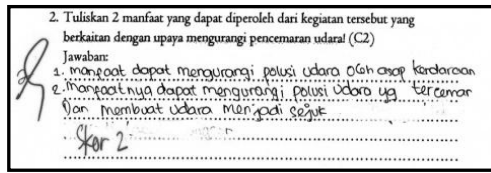 2. Tuliskan 2 manfaat yang dapat diperoleh dari kegiatan tersebut yang
berkaitan dengan upaya mengurangi pencemaran udara! (C2)
Jawaban:
1. manfaat dapat mengurangi polusi udara oleh asap kendaraan
2. manfaatnya dapat mengurangi polusi udara yg tercemar
Dan membuat udara menjadi sejuk
Skor 2